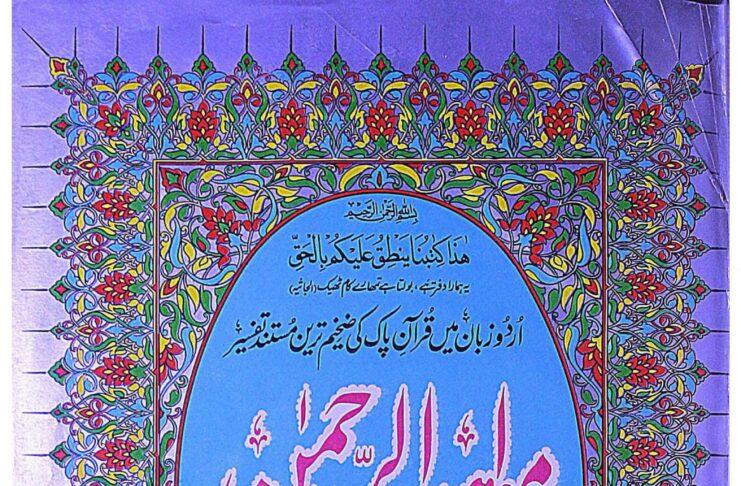 بِسْمِ اللّٰهِ الرَّحْمٰنِ الرَّحِيْمِ
هٰذَا كِتٰبُنَا يَنْطِقُ عَلَيْكُمْ بِالْحَقِّ
یہ ہمارا دفتر ہے، بولتا ہے تمھارے کام ٹھیک (الجاثیہ)
اُردو زبان میں قُرآنِ پاک کی ضخیم ترین مُستند تفسیر
الرَّحمٰن